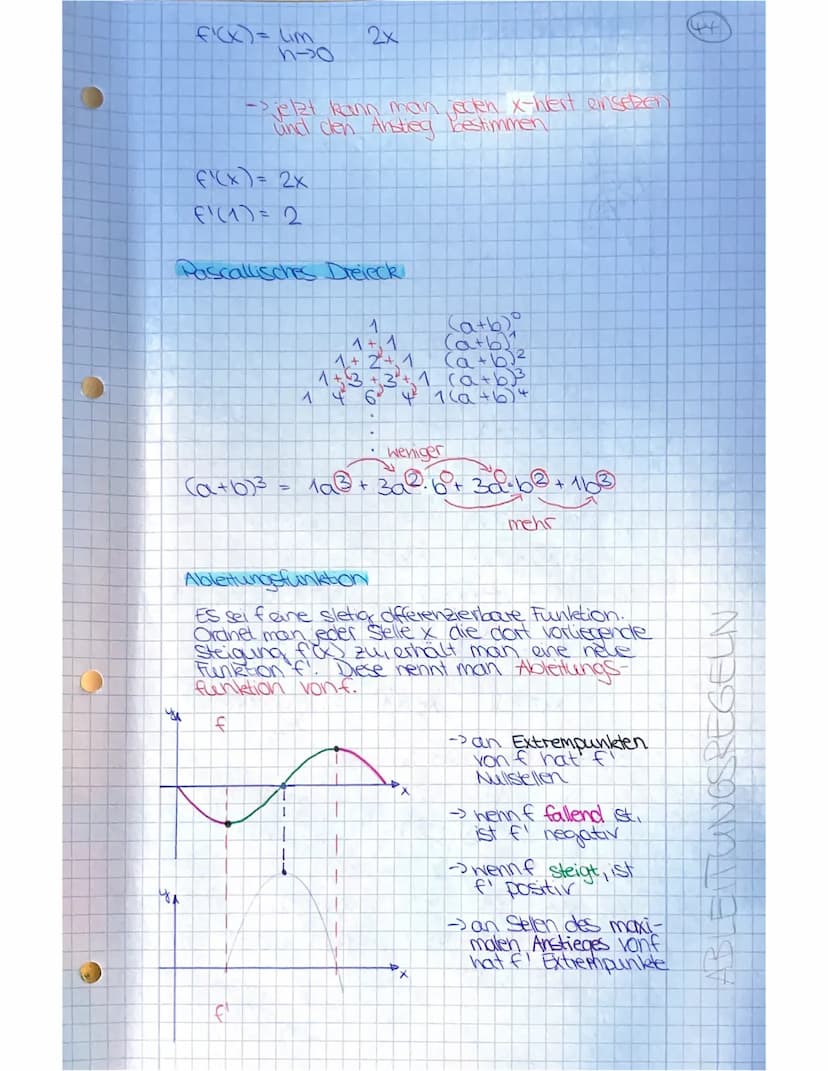 44
f'(x) = lim 2x
h->0
-> jetzt kann man jeden x-Wert einsetzen
und den Anstieg bestimmen
f'(x) = 2x
f'(1) = 2
Pascallisches Dreieck
1 (a+b)⁰
1 + 1 (a+b)¹
1 + 2 + 1 (a+b)²
1 + 3 + 3 + 1 (a+b)³
1 4 6 4 1 (a+b)⁴
weniger
(a+b)³ = 1a³ + 3a²·b + 3a·b² + 1b³
mehr
Ableitungsfunktion
Es sei f eine stetig differenzierbare Funktion.
Ordnet man jeder Stelle x die dort vorliegende
Steigung f'(x) zu, erhält man eine neue
Funktion f'. Diese nennt man Ableitungs-
funktion von f.
y
f
x
-> an Extrempunkten
von f hat f'
Nullstellen
-> wenn f fallend ist,
ist f' negativ
-> wenn f steigt, ist
f' positiv
-> an Stellen des maxi-
malen Anstieges von f
hat f' Extrempunkte
y
x
f'
ABLEITUNGSREGELN